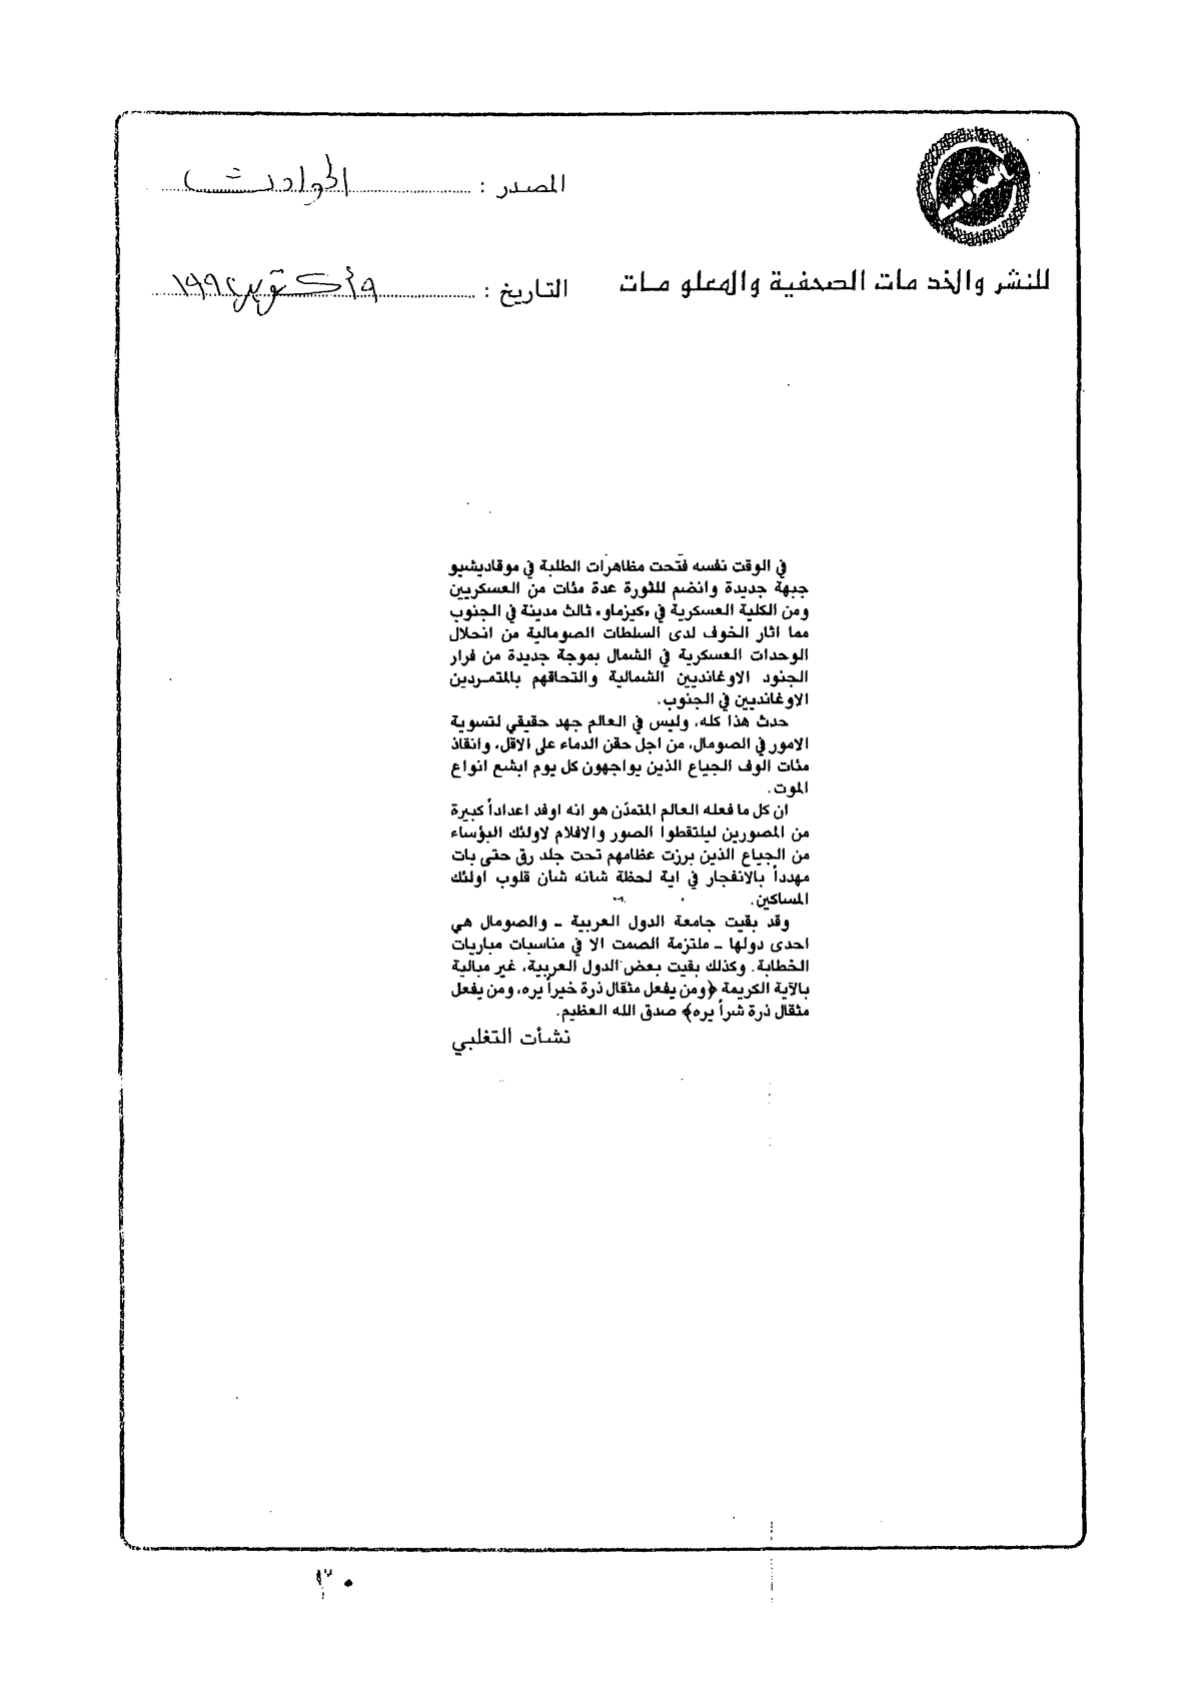 المصدر : الحوادث
للنشر والخدمات الصحفية والمعلومات
التاريخ : ٩ أكتوبر ١٩٩٢
في الوقت نفسه فتحت مظاهرات الطلبة في موقاديشيو
جبهة جديدة وانضم للثورة عدة مئات من العسكريين
ومن الكلية العسكرية في «كيزماو» ثالث مدينة في الجنوب
مما اثار الخوف لدى السلطات الصومالية من انحلال
الوحدات العسكرية في الشمال بموجة جديدة من فرار
الجنود الاوغانديين الشمالية والتحاقهم بالمتمردين
الاوغانديين في الجنوب.
حدث هذا كله، وليس في العالم جهد حقيقي لتسوية
الامور في الصومال، من اجل حقن الدماء على الاقل، وانقاذ
مئات الوف الجياع الذين يواجهون كل يوم ابشع انواع
الموت.
ان كل ما فعله العالم المتمدّن هو انه اوفد اعداداً كبيرة
من المصورين ليلتقطوا الصور والافلام لاولئك البؤساء
من الجياع الذين برزت عظامهم تحت جلد رق حتى بات
مهدداً بالانفجار في اية لحظة شانه شان قلوب اولئك
المساكين.
وقد بقيت جامعة الدول العربية ـ والصومال هي
احدى دولها ـ ملتزمة الصمت الا في مناسبات مباريات
الخطابة. وكذلك بقيت بعض الدول العربية، غير مبالية
بالآية الكريمة ﴿ومن يفعل مثقال ذرة خيراً يره، ومن يفعل
مثقال ذرة شراً يره﴾ صدق الله العظيم.
نشأت التغلبي